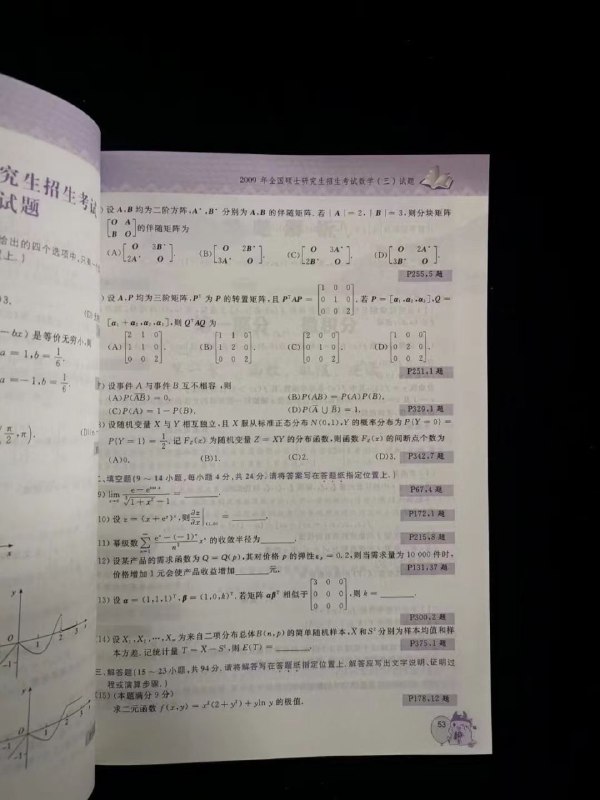 究生招生考试
试题
给出的四个选项中,只有一
置上.)
)3.
-bx) 是等价无穷小,则
a = 1,b = 1/6.
a = -1,b = 1/6.
π/2, π).
2009 年全国硕士研究生招生考试数学(三)试题
) 设 A,B 均为二阶方阵,A*,B* 分别为 A,B 的伴随矩阵. 若 | A | = 2, | B | = 3,则分块矩阵
[O A; B O] 的伴随矩阵为
(A) [O 3B*; 2A* O]. (B) [O 2B*; 3A* O]. (C) [O 3A*; 2B* O]. (D) [O 2A*; 3B* O].
P255,5 题
) 设 A,P 均为三阶矩阵,Pᵀ 为 P 的转置矩阵,且 PᵀAP = [1 0 0; 0 1 0; 0 0 2]. 若 P = [α₁,α₂,α₃],Q =
[α₁ + α₂,α₂,α₃],则 QᵀAQ 为
(A) [2 1 0; 1 1 0; 0 0 2]. (B) [1 1 0; 1 2 0; 0 0 2]. (C) [2 0 0; 0 1 0; 0 0 2]. (D) [1 0 0; 0 2 0; 0 0 2].
P251,1 题
) 设事件 A 与事件 B 互不相容,则
(A)P(A̅B̅) = 0. (B)P(AB) = P(A)P(B).
(C)P(A) = 1 - P(B). (D)P(A̅ ∪ B̅) = 1.
P329,1 题
) 设随机变量 X 与 Y 相互独立,且 X 服从标准正态分布 N(0,1),Y 的概率分布为 P{Y = 0} =
P{Y = 1} = 1/2. 记 F_Z(z) 为随机变量 Z = XY 的分布函数,则函数 F_Z(z) 的间断点个数为
(A)0. (B)1. (C)2. (D)3.
P342,7 题
二、填空题(9 ~ 14 小题,每小题 4 分,共 24 分. 请将答案写在答题纸指定位置上.)
9) lim x→0 (e - e^{cos x})/(∛(1+x²) - 1) = ______.
P67,4 题
(10) 设 z = (x + e^y)^x,则 ∂z/∂x |(1,0) = ______.
P172,1 题
(11) 幂级数 ∑ n=1 ∞ (eⁿ - (-1)ⁿ)/n² xⁿ 的收敛半径为______.
P215,8 题
(12) 设某产品的需求函数为 Q = Q(p),其对价格 p 的弹性 ε_p = 0.2,则当需求量为 10 000 件时,
价格增加 1 元会使产品收益增加______元.
P131,37 题
(13) 设 α = (1,1,1)ᵀ,β = (1,0,k)ᵀ. 若矩阵 αβᵀ 相似于 [3 0 0; 0 0 0; 0 0 0],则 k = ______.
P300,2 题
(14) 设 X₁,X₂,…,Xₘ 为来自二项分布总体 B(n,p) 的简单随机样本,X̅ 和 S² 分别为样本均值和样
本方差. 记统计量 T = X̅ - S²,则 E(T) = ______.
P375,1 题
三、解答题(15 ~ 23 小题,共 94 分. 请将解答写在答题纸指定位置上. 解答应写出文字说明、证明过
程或演算步骤.)
(15)(本题满分 9 分)
P178,12 题
求二元函数 f(x,y) = x²(2 + y²) + yln y 的极值.
53